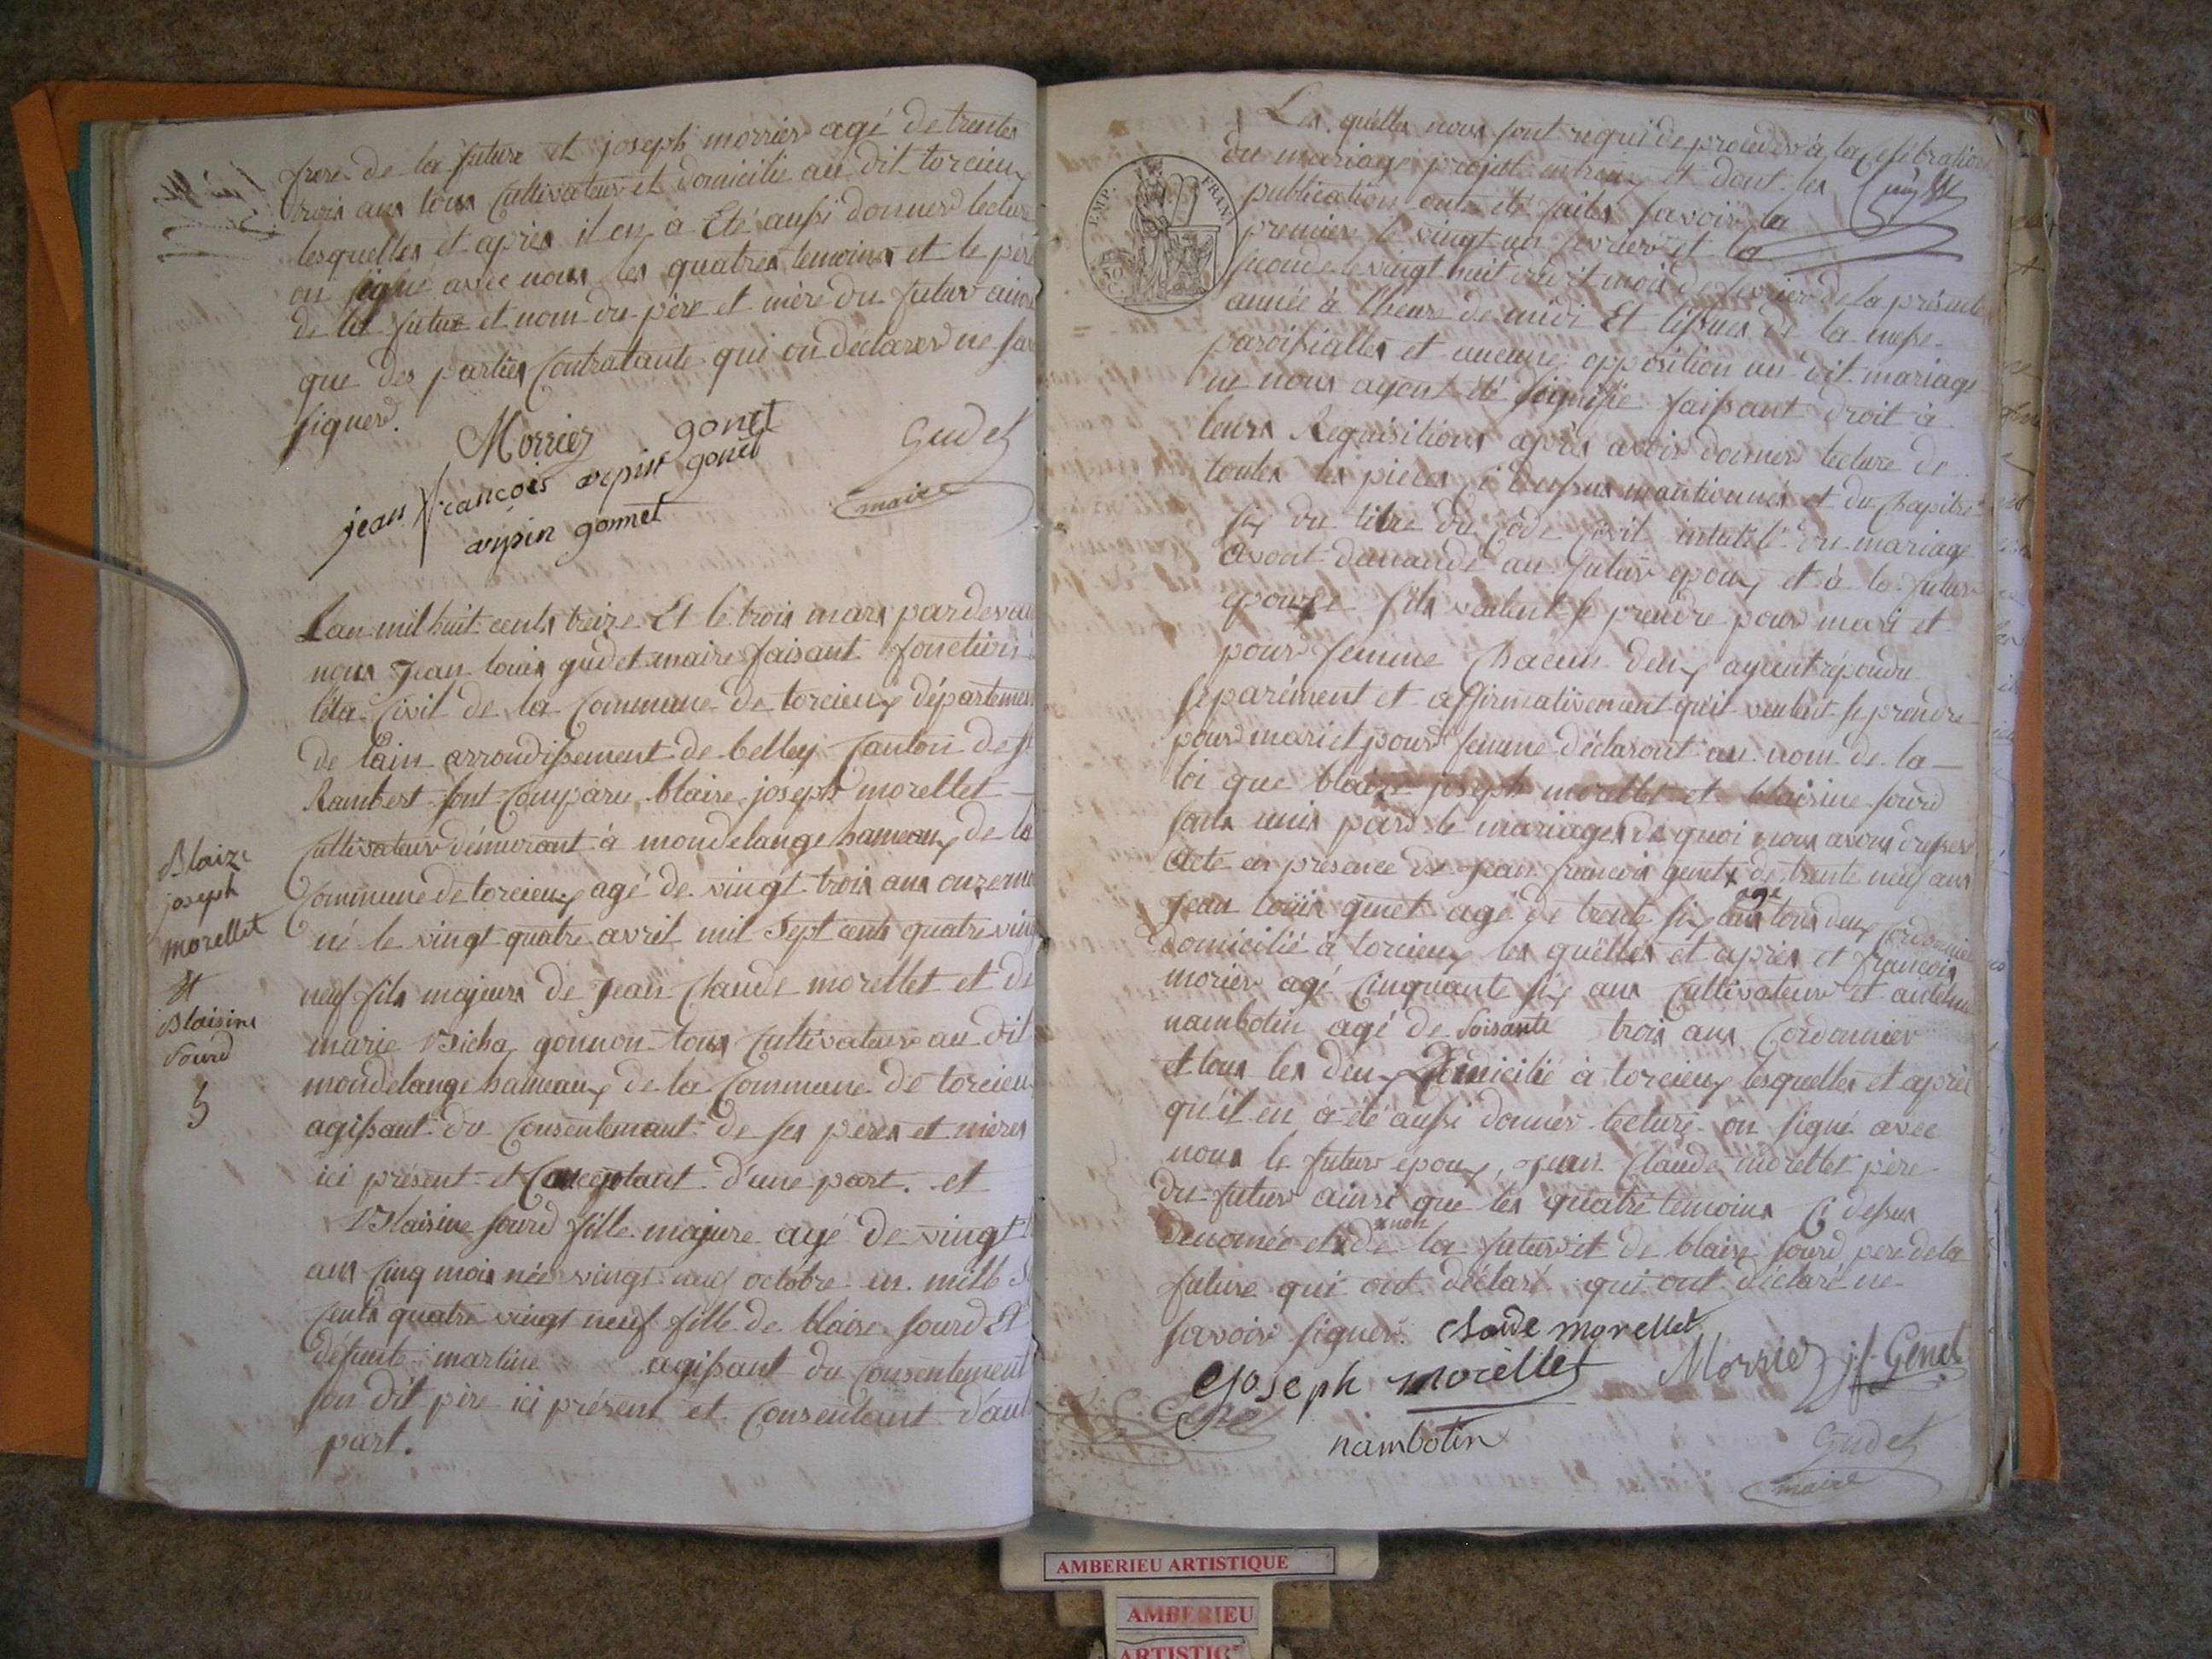 frere de la future et joseph morrier agé de trentes
trois ans tous Cultivateur et domicilié au dit torcieux
lesquelles et après il en a Eté aussi donner lecture
on signé avec nous les quatres temoins et le père
de la future et nom du père et mère du futur ainsi
que des parties Contratante qui on déclarer ne sav
signer.
Morrier gonet
jean françois arpin gonet
arpin gonnet
Gudet
maire
Blaize
joseph
morellet
Et
Blaisine
Sourd
Lan mil huit cents treize Et le trois mars pardevan
nous Jean louis gudet maire faisant fonctions
léta Civil de la Commune de torcieux départemen
de lain arrondissement de belley Canton de St
Rambert sont Comparu blaise joseph morellet
Cultivateur démeurant à mondelange hameaux de la
Commune de torcieux agé de vingt trois ans onze moi
né le vingt quatre avril mil Sept cents quatre ving
neuf fils majeurs de Jean Claude morellet et de
marie gonnon tous Cultivateur au dit
mondelange hameaux de la Commune de torcieu
agissant du Consentemant de ses pères et mères
ici présent et acceptant d'une part. et
Blaisine sourd fille majure agé de vingt t
ans Cinq mois née vingt neuf octobre en mille S
Cents quatre vingt neuf fille de blaise sourd Et
défunte martine agissant du Consentement
son dit père ici présent et Consentant d'aut
part.
EMP. FRAN
50 C
Les quelles nous sont requi de proceder à la Celébration
du mariage projeté entreux et dont les
publication onts été faites savoir la
premier le vingt un fevrier et la
seconde le vingt huit du dit mois de fevrier de la présente
année à lheure de midi Et lissues de la messe
paroissialles et aucune opposition au dit mariage
ne nous ayant été signifié faissant droit à
leurs Requisitions après avoir donner lecture de
toutes les pieces Ci dessus mantionnés et du Chapitre
six du titre du Code Civil intitulé du mariage
avont demandé au futur epoux et à la future
epouze sils veulent se prendre pour mari et
pour femme Chacun deux ayant répondu
séparément et affirmativemant qu'il veulent se prendre
pour mari et pour femme déclaront au nom de la
loi que blaize joseph morellet et blaisine sourd
sonts unis par le mariages de quoi nous avons dresser
acte en présence de Jean francois genet x de trente neuf ans
age
Jean louis genet agé de trente six ans tous deux Cordonnier
domicilié à torcieux les quelles et apries et francois
morier agé Cinquante six ans Cultivateur et antelme
nambotin agé de Soisante trois ans Cordonnier
et tous les deux Domicilié à torcieux lesquelles et après
qu'il en à été aussi donner lecture on signé avec
nous le futur epoux, Jean Claude morellet père
du futur ainsi que les quatre temoins Ci dessus
x non
denomée et x de la future et de blaise sourd pere de la
future qui ont déclaré qui ont déclaré ne
savoir signer. Claude morellet
Joseph morellet Morrier j. f. Genet
nambotin
Gudet
maire
AMBERIEU ARTISTIQUE
AMBERIEU
ARTISTIQ